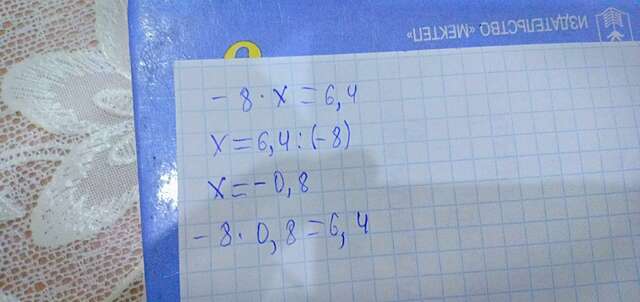 ИЗДАТЕЛЬСТВО «МЕКТЕП»
- 8 · x = 6,4
x = 6,4 : (-8)
x = - 0,8
- 8 · 0,8 = 6,4